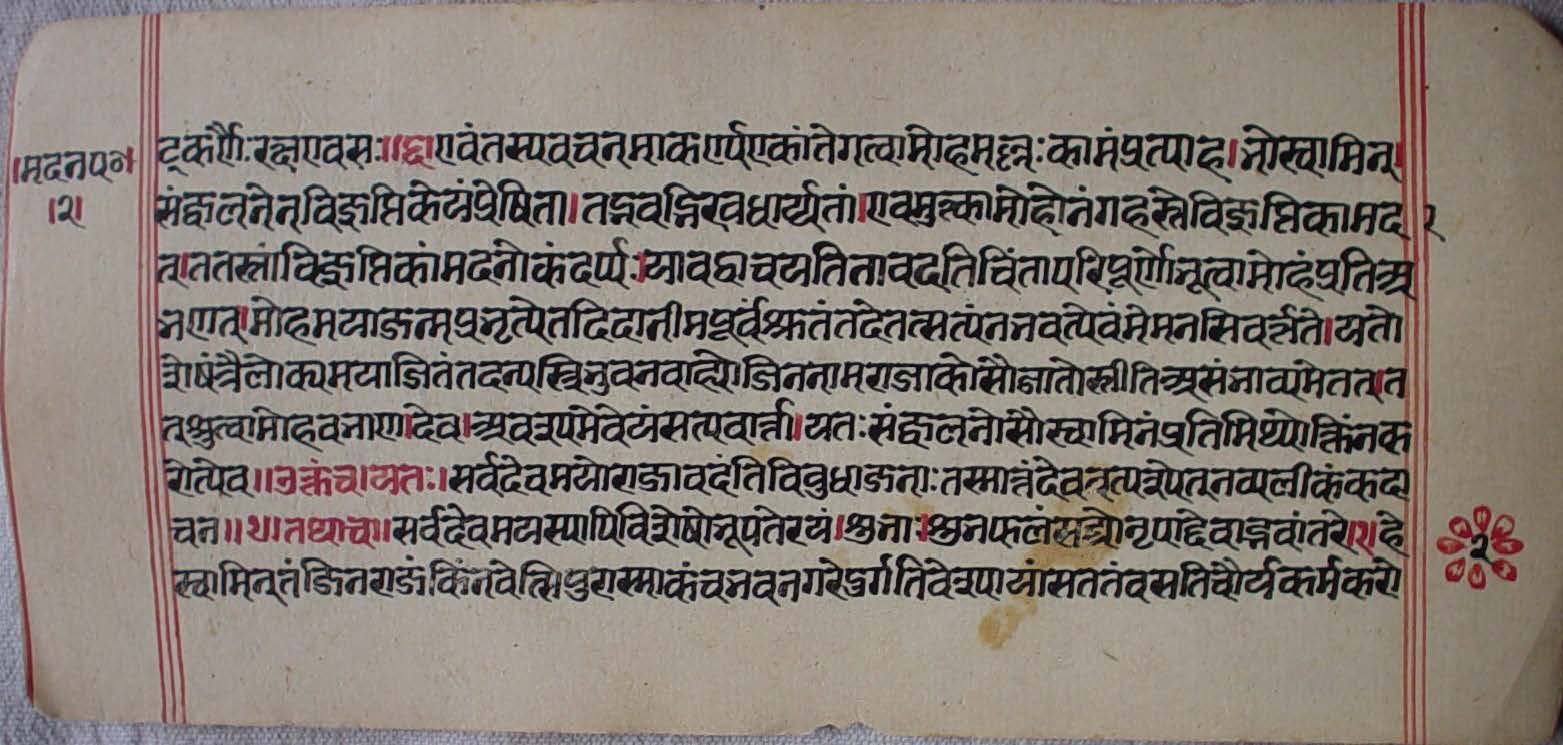 ।मदनप०।
।२।
ट्कर्णैः रक्षएवसः॥छ॥एवंतस्यवचनमाकर्ण्यएकांतेगत्वामोहमल्लःकामंप्रत्याह।भोस्वामिन्।
संज्वलनेनविज्ञप्तिकेयंप्रेषिता।तद्भवद्भिरवधार्य्यतां।एवमुक्त्कामोहोनंगहस्तेविज्ञप्तिकामदा २
त्।ततस्तांविज्ञप्तिकांमदनोकंदर्प्पः।यावद्वाचयतितावदतिचिंतापरिपूर्णोभूत्वामोहंप्रतिअ
भणत्।मोहमयाजन्मप्रभृत्येतदिदानीमपूर्वंश्रुतंतदेतत्सत्यंनभवत्येवंमेमनसिवर्त्तते।यतो
शेषंत्रैलोक्यमयाजितंतदन्यस्त्रिभुवनवाह्योजिननामराजाकोसौजातोस्तीतिअसंभाव्यमेतत्।त
त्श्रुत्वामोहवभाण।देव।अवश्यमेवेयंसत्यवार्त्ता।यतःसंज्वलनोसौस्वामिनंप्रतिमिथ्योक्तिंनक
रोत्येव॥उक्तंच।यतः।सर्वदेवमयोराजावदंतिविबुधाजनाःतस्मात्तंदेवतत्पश्येतनव्यलीकंकदा
चन॥१।तथाच॥सर्वदेवमयस्यापिविशेषोभूपतेरयं।शुभाःशुभफलंसद्योनृपाद्देवाद्भवांतरे।२।हे
स्वामिन्तंजिनराजंकिंनवेत्सिपुरास्माकंचभवनगरेदुर्गतिवेश्यायांसततंवसतिचौर्यकर्मकरो
२